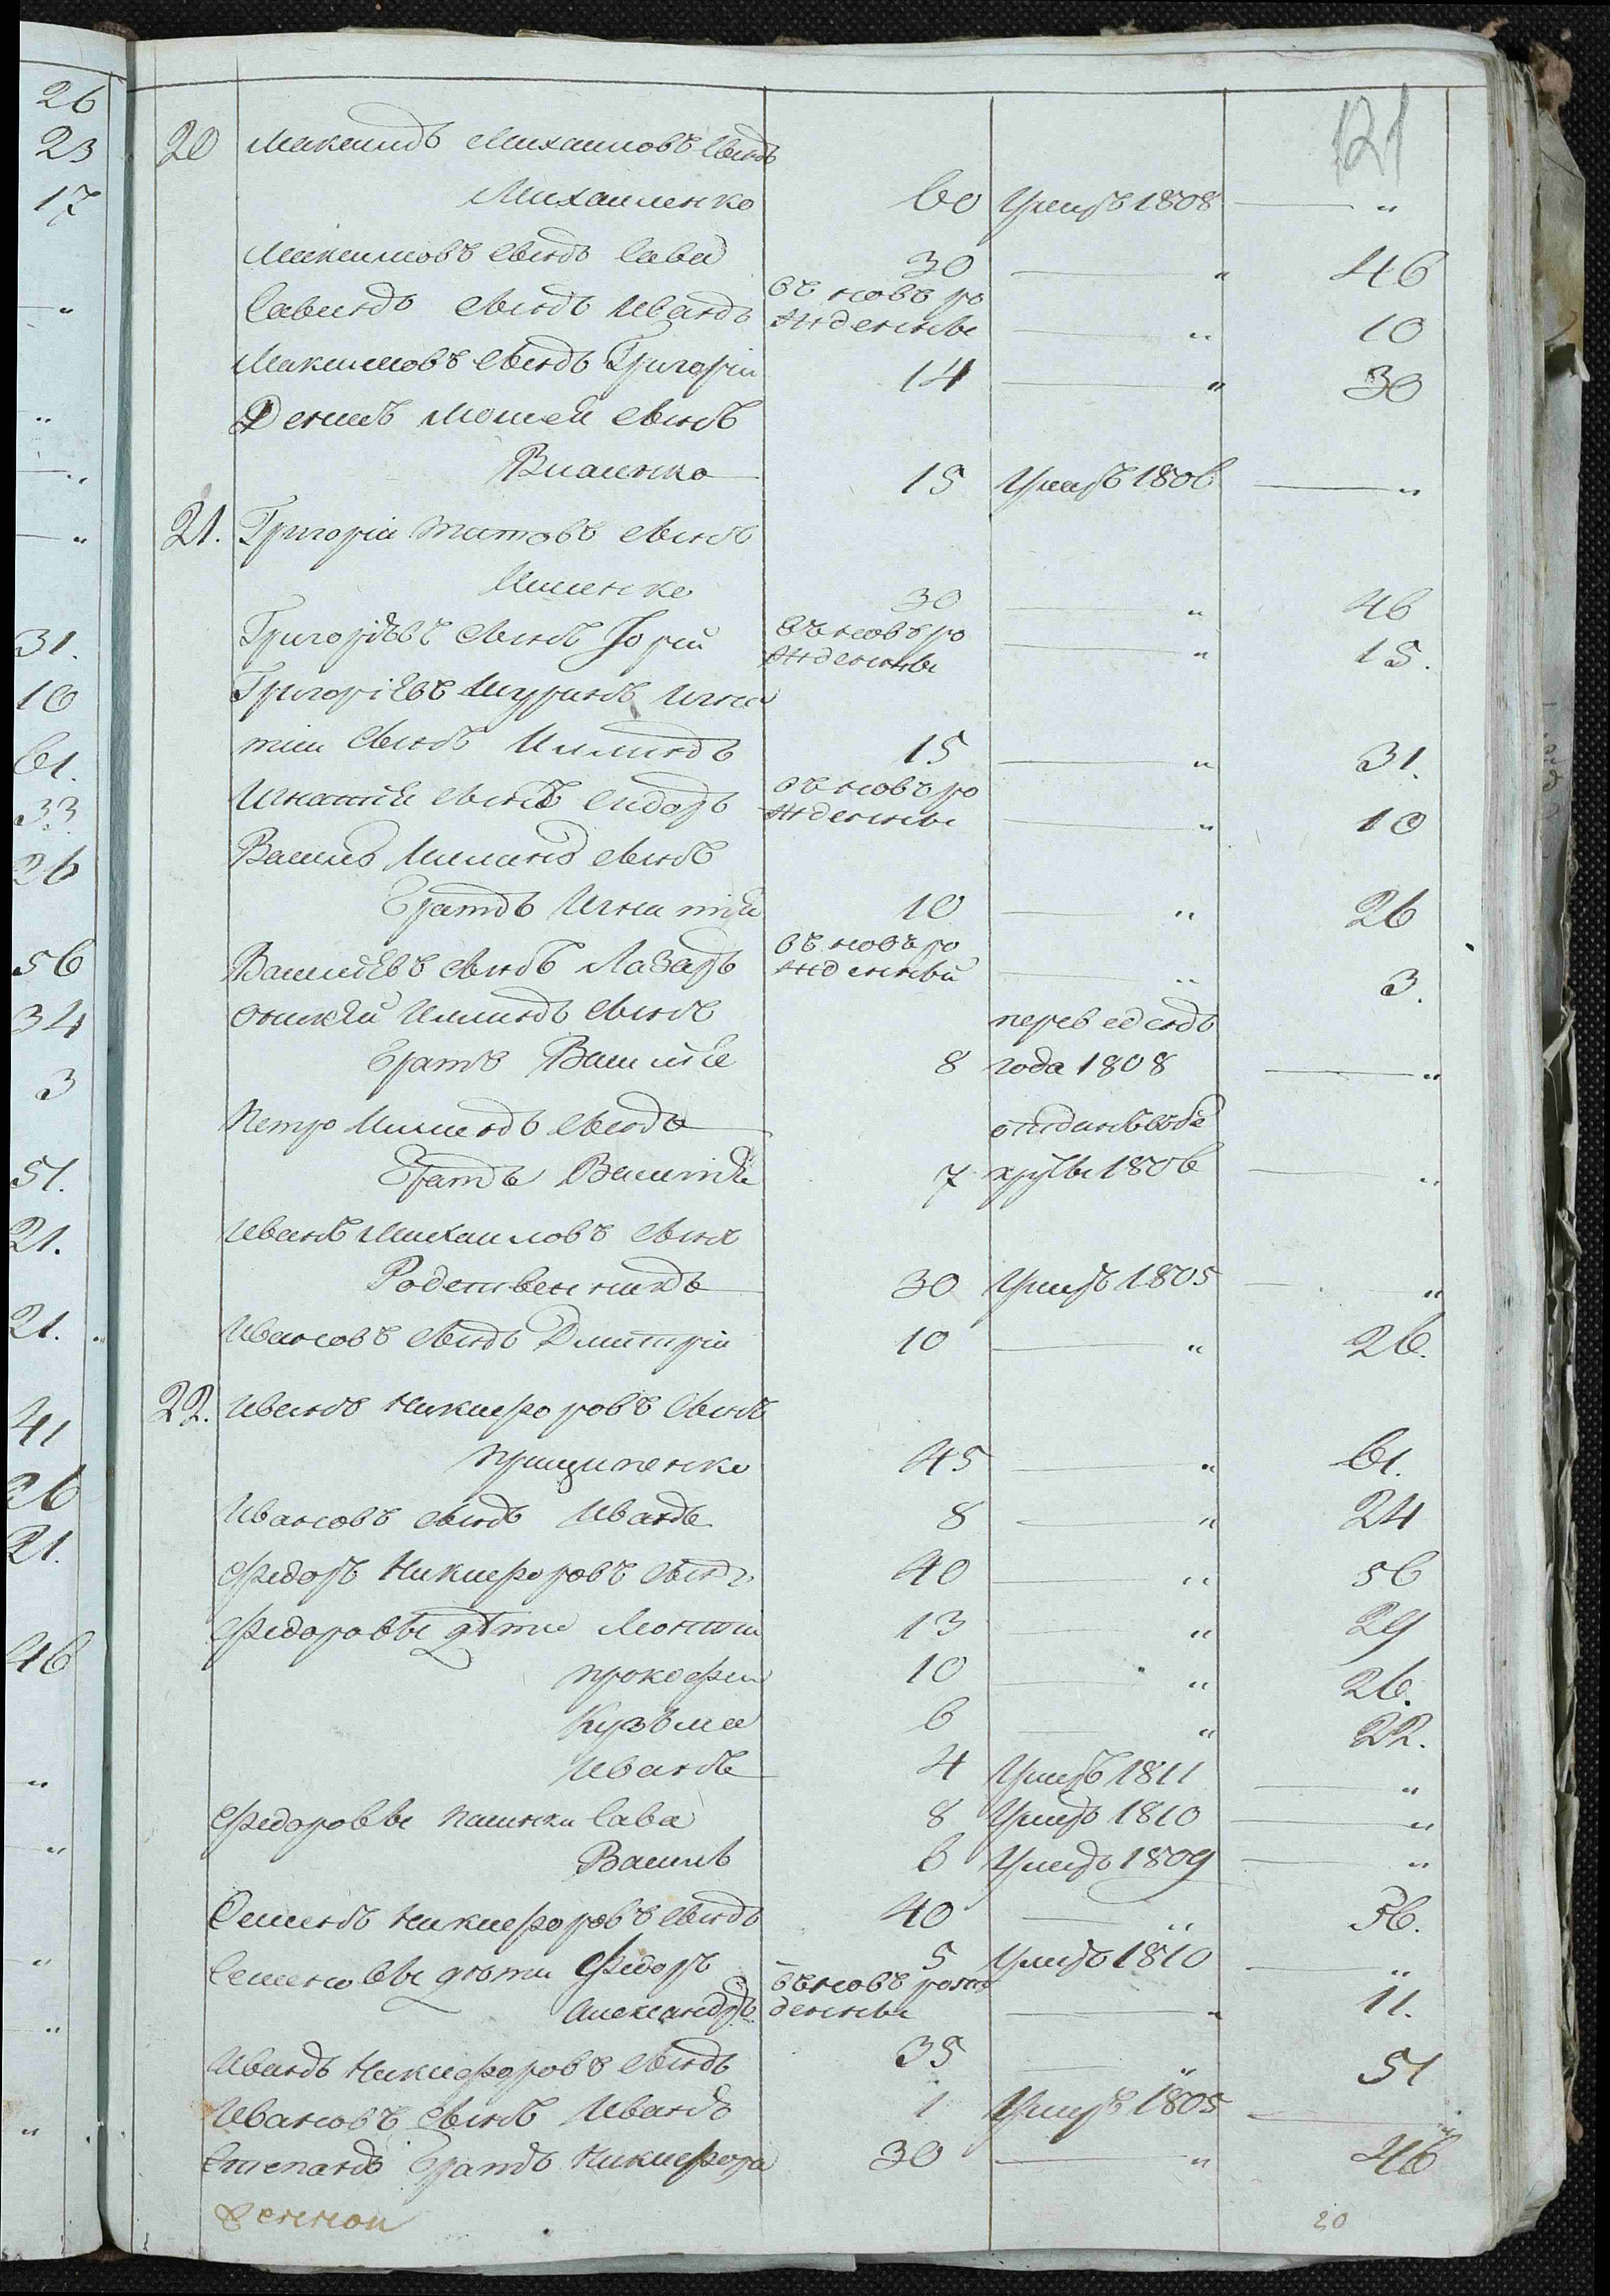 121
20 Максимъ Михаиловъ сынъ
Михаиленко 60 Умеръ 1808 — "
Максимовъ сынъ Сава 30 — " 46
Савинъ сынъ Иванъ въ новъ ро
жденны — " 10
Максимовъ сынъ Григорiи 14 — " 30
Денисъ сынъ
15 Умеръ 1806 — "
21. Григорiи Титовъ сынъ
30 — " 46
Григорьевъ сынъ Юрiй въ новъ ро
жденны — " 15.
Григорiевъ Шуринъ Игна
тiи сынъ Илiинъ 15 — " 31.
Игнатiя сынъ Сидоръ въ новъ ро
жденны — " 10
Василь Илiинъ сынъ
братъ Игнатiя 10 — " 26
Василiевъ сынъ Лазаръ въ новъ ро
жденный — " 3.
Илiинъ сынъ переведенъ
братъ Василiя 8 года 1808 — "
Петро сынъ
братъ Василiя 7 1806 — "
Иванъ Михаиловъ сынъ
Родственникъ 30 Умеръ 1805 — "
Ивановъ сынъ Дмитрiи 10 — " 26.
22. Иванъ Никифоровъ сынъ
Прищипенко 45 — " 61.
Ивановъ сынъ Иванъ 8 — " 24
Федоръ Никифоровъ сынъ 40 — " 56
Федоровы дѣти Леонтiи 13 — " 29
Прокофiи 10 — " 26.
Кузьма 6 — " 22.
Иванъ 4 Умеръ 1811 — "
Федоровы пасинки Сава 8 Умеръ 1810 — "
Василь 6 Умеръ 1809 — "
Семенъ Никифоровъ сынъ 40 — " 56.
Семеновы дѣти Федоръ 5 Умеръ 1810 — "
Александръ въ новъ рож
денны — " 11.
Иванъ Никифоровъ сынъ 35 — " 51
Ивановъ сынъ Иванъ 1 Умеръ 1805 — "
Степанъ братъ Никифора 30 — " 46
20
26
23
17
"
"
"
"
31.
10
61.
33
26
56
34
3
51.
21.
21.
41
26
21.
46
"
"
"
"
"